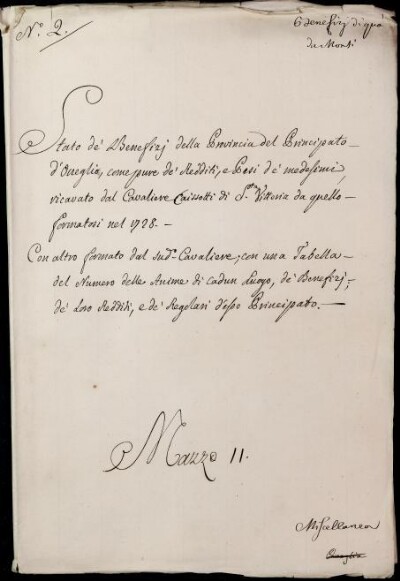 N.° 2.
Benefizj di quà
da Monti
Stato de' Benefizj della Provincia del Principato
d'Oneglia, come pure de' Redditi, e Pesi d'e medesimi,
ricavato dal Cavaliere Caissotti di S.ta Vittoria da quello
formatosi nel 1728.-
Con altro formato dal sud.° Cavaliere; con una Tabella
del Numero delle Anime di cadun Luogo, de' Benefizj,
de' loro Redditi, e de' Regolari d'esso Principato.-
Mazzo 11.
Miscellanea